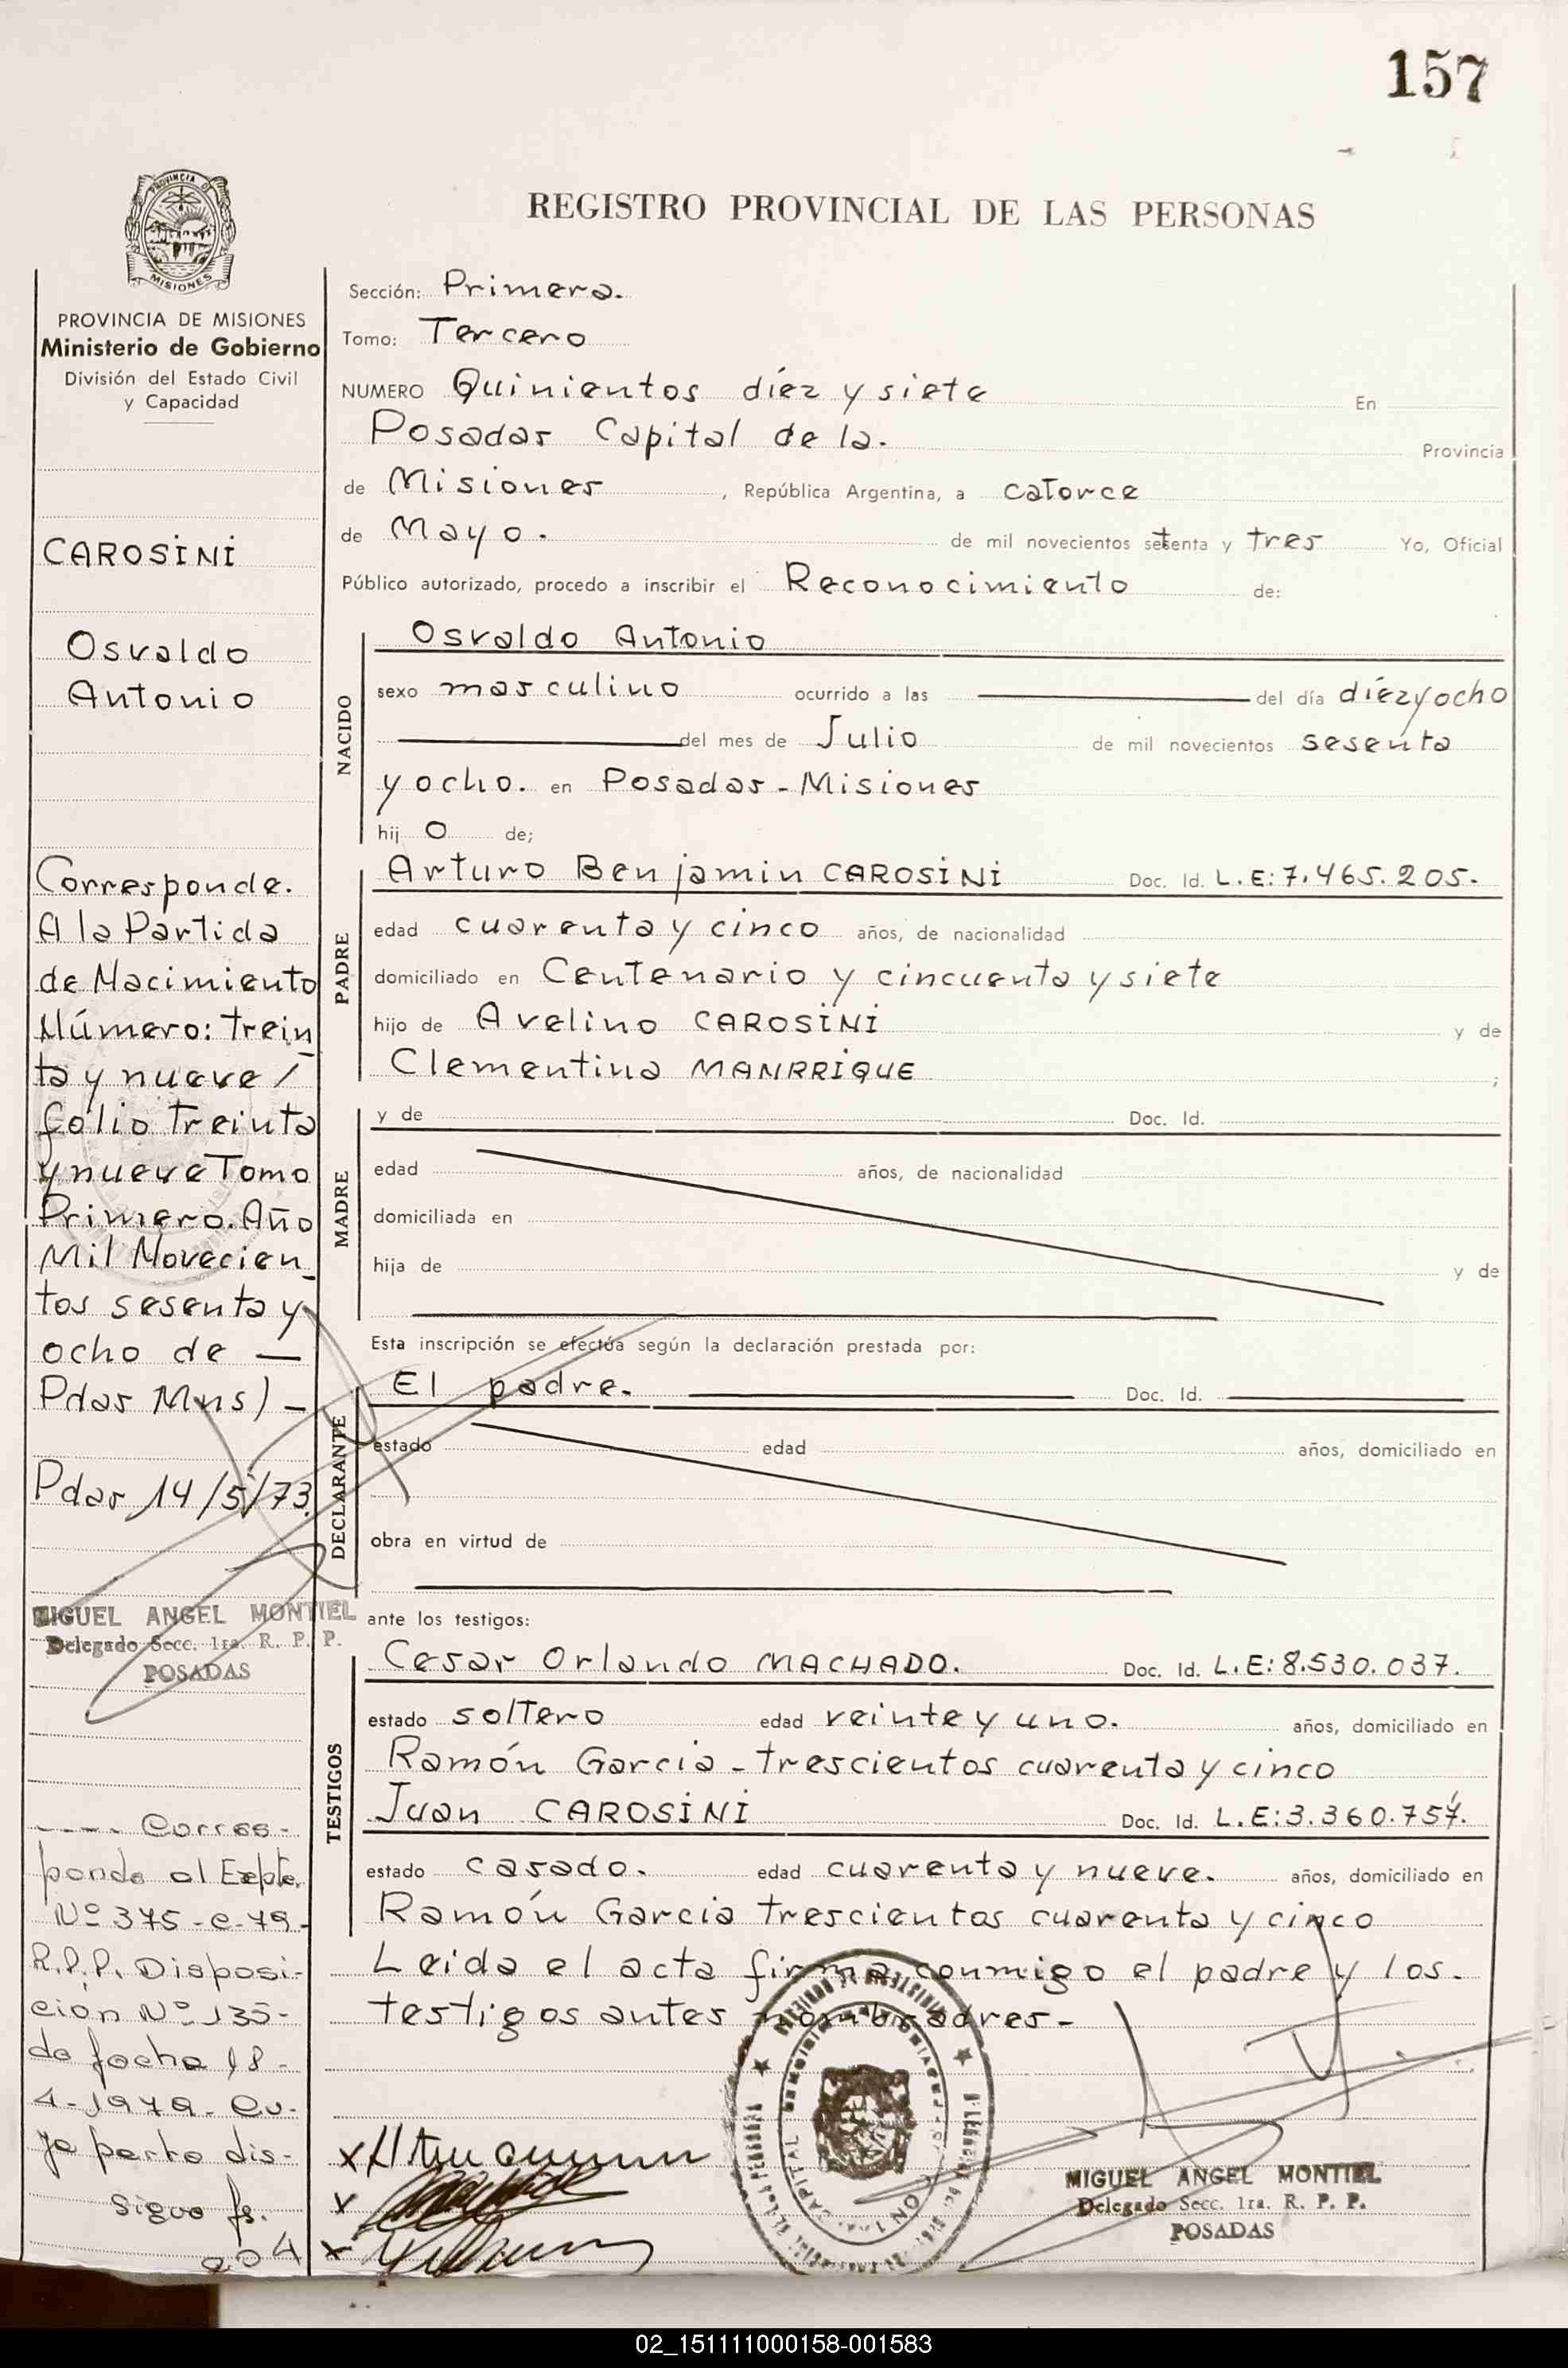 157
PROVINCIA DE
MISIONES
REGISTRO PROVINCIAL DE LAS PERSONAS
PROVINCIA DE MISIONES
Ministerio de Gobierno
División del Estado Civil
y Capacidad
CAROSINI
Osvaldo
Antonio
Corresponde.
A la Partida
de Nacimiento
Número: trein
ta y nueve /
folio treinta
y nueve Tomo
Primero. Año
Mil Novecien_
tos sesenta y
ocho de —
Pdas Mns) —
Pdas 14/5/73.
MIGUEL ANGEL MONTIEL
Delegado Secc. 1ra. R. P. P.
POSADAS
---- Corres-
ponde al Expte.
Nº 375-C-79-
R.P.P. Disposi-
ción Nº 135-
de fecha 18-
4-1979- Cu-
ya parte dis-
sigue fs.
204
Sección: Primera.
Tomo: Tercero
NUMERO Quinientos díez y siete En
Posadas Capital de la. Provincia
de Misiones, República Argentina, a catorce
de Mayo. de mil novecientos setenta y tres Yo, Oficial
Público autorizado, procedo a inscribir el Reconocimiento de:
NACIDO
Osvaldo Antonio
sexo masculino ocurrido a las del día díezyocho
del mes de Julio de mil novecientos sesenta
y ocho. en Posadas - Misiones
hij o de;
PADRE
Arturo Benjamin CAROSINI Doc. Id. L.E:7.465.205.
edad cuarenta y cinco años, de nacionalidad
domiciliado en Centenario y cincuenta y siete
hijo de Avelino CAROSINI y de
Clementina MANRRIQUE ;
MADRE
y de Doc. Id.
edad años, de nacionalidad
domiciliada en
hija de y de
Esta inscripción se efectúa según la declaración prestada por:
DECLARANTE
El padre. Doc. Id.
estado edad años, domiciliado en
obra en virtud de
ante los testigos:
TESTIGOS
Cesar Orlando MACHADO. Doc. Id. L.E:8.530.037.
estado soltero edad veinte y uno. años, domiciliado en
Ramón Garcia - trescientos cuarenta y cinco
Juan CAROSINI Doc. Id. L.E:3.360.757.
estado casado. edad cuarenta y nueve. años, domiciliado en
Ramón Garcia trescientos cuarenta y cinco
Leida el acta firma conmigo el padre y los.
testigos antes nombradres-
CAPITAL
MIGUEL ANGEL MONTIEL
Delegado Secc. 1ra. R. P. P.
POSADAS
02_151111000158-001583